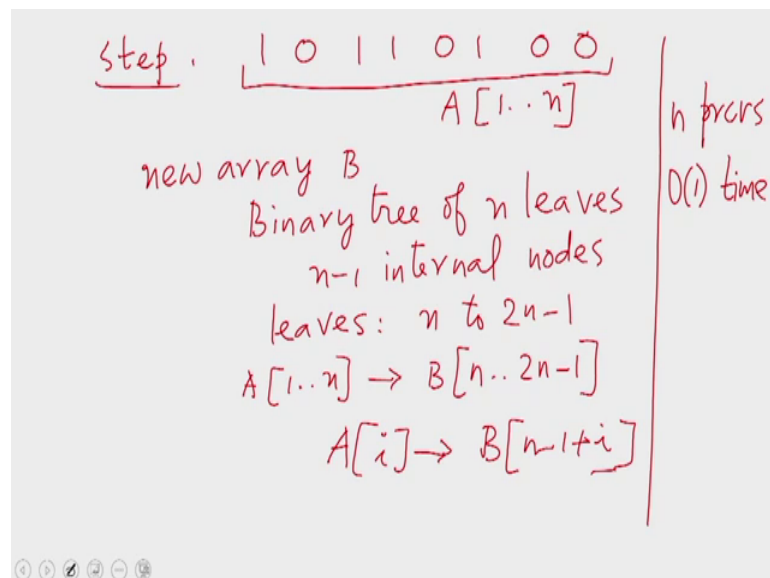 step. 1 0 1 1 0 1 0 0
A[1..n]
new array B
Binary tree of n leaves
n-1 internal nodes
leaves: n to 2n-1
A[1..n] → B[n..2n-1]
A[i] → B[n-1+i]
n prcrs
O(1) time